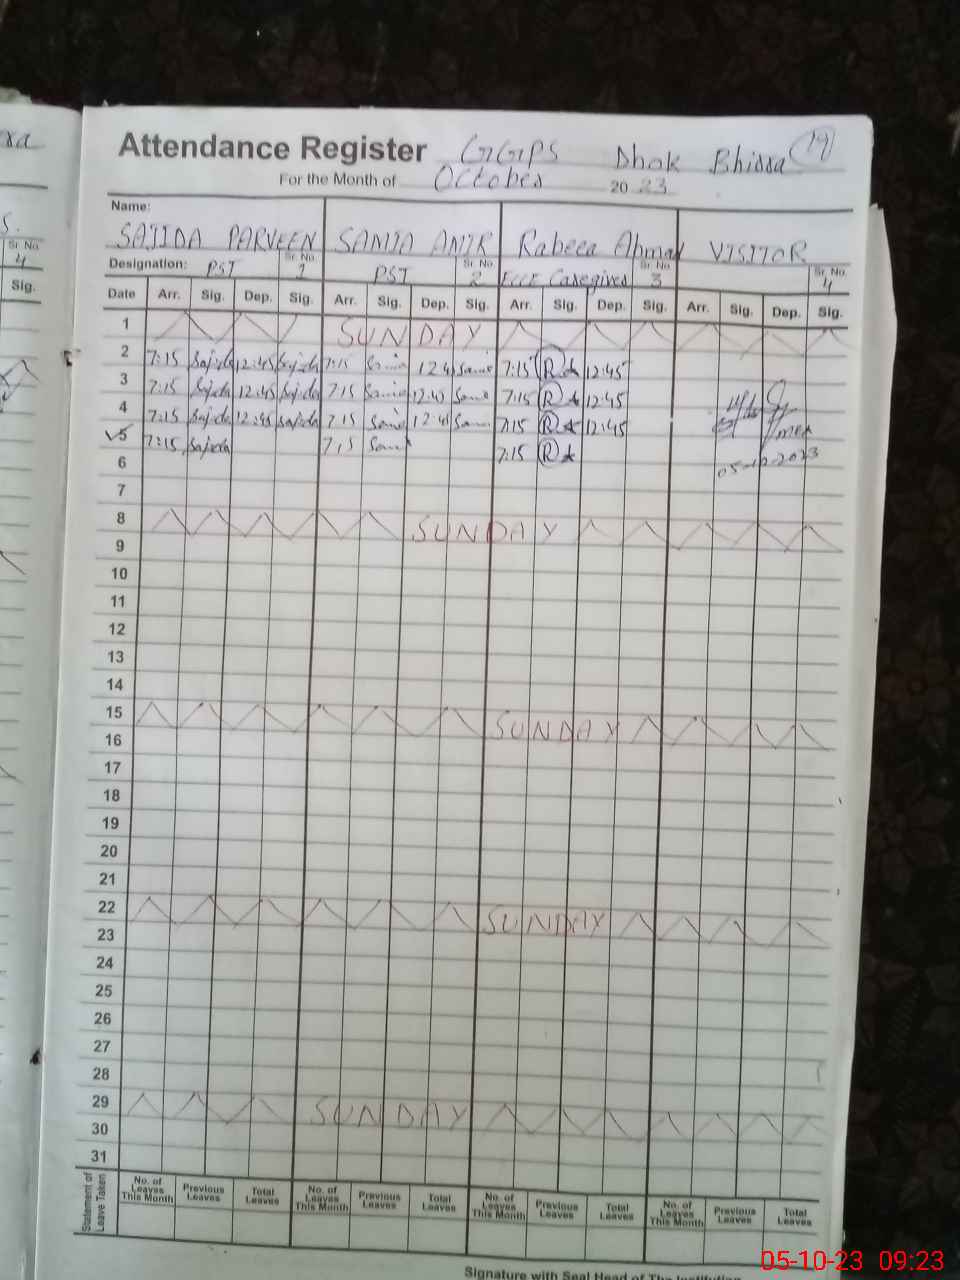 Attendance Register GGPS Dhok Bhissa 19
For the Month of October 2023
Name:
SAJIDA PARVEEN SAMIA AMIR Rabeea Ahmad VISITOR
Designation: PST Sr. No. 1 PST Sr. No. 2 ECCE Caregiver Sr. No. 3 Sr. No. 4
Date Arr. Sig. Dep. Sig. Arr. Sig. Dep. Sig. Arr. Sig. Dep. Sig. Arr. Sig. Dep. Sig.
1 SUNDAY
2 7:15 Sajida 12:45 Sajida 7:15 Samia 12:45 Samia 7:15 R 12:45
3 7:15 Sajida 12:45 Sajida 7:15 Samia 12:45 Samia 7:15 R 12:45
4 7:15 Sajida 12:45 Sajida 7:15 Samia 12:45 Samia 7:15 R 12:45
5 7:15 Sajida 7:15 Samia 7:15 R MEA
05-10-2023
6
7
8 SUNDAY
9
10
11
12
13
14
15 SUNDAY
16
17
18
19
20
21
22 SUNDAY
23
24
25
26
27
28
29 SUNDAY
30
31
Statement of Leave Taken
No. of Leaves This Month Previous Leaves Total Leaves No. of Leaves This Month Previous Leaves Total Leaves No. of Leaves This Month Previous Leaves Total Leaves No. of Leaves This Month Previous Leaves Total Leaves
Signature with Seal Head of The Institution
Sr. No.
4
Sig.
05-10-23 09:23